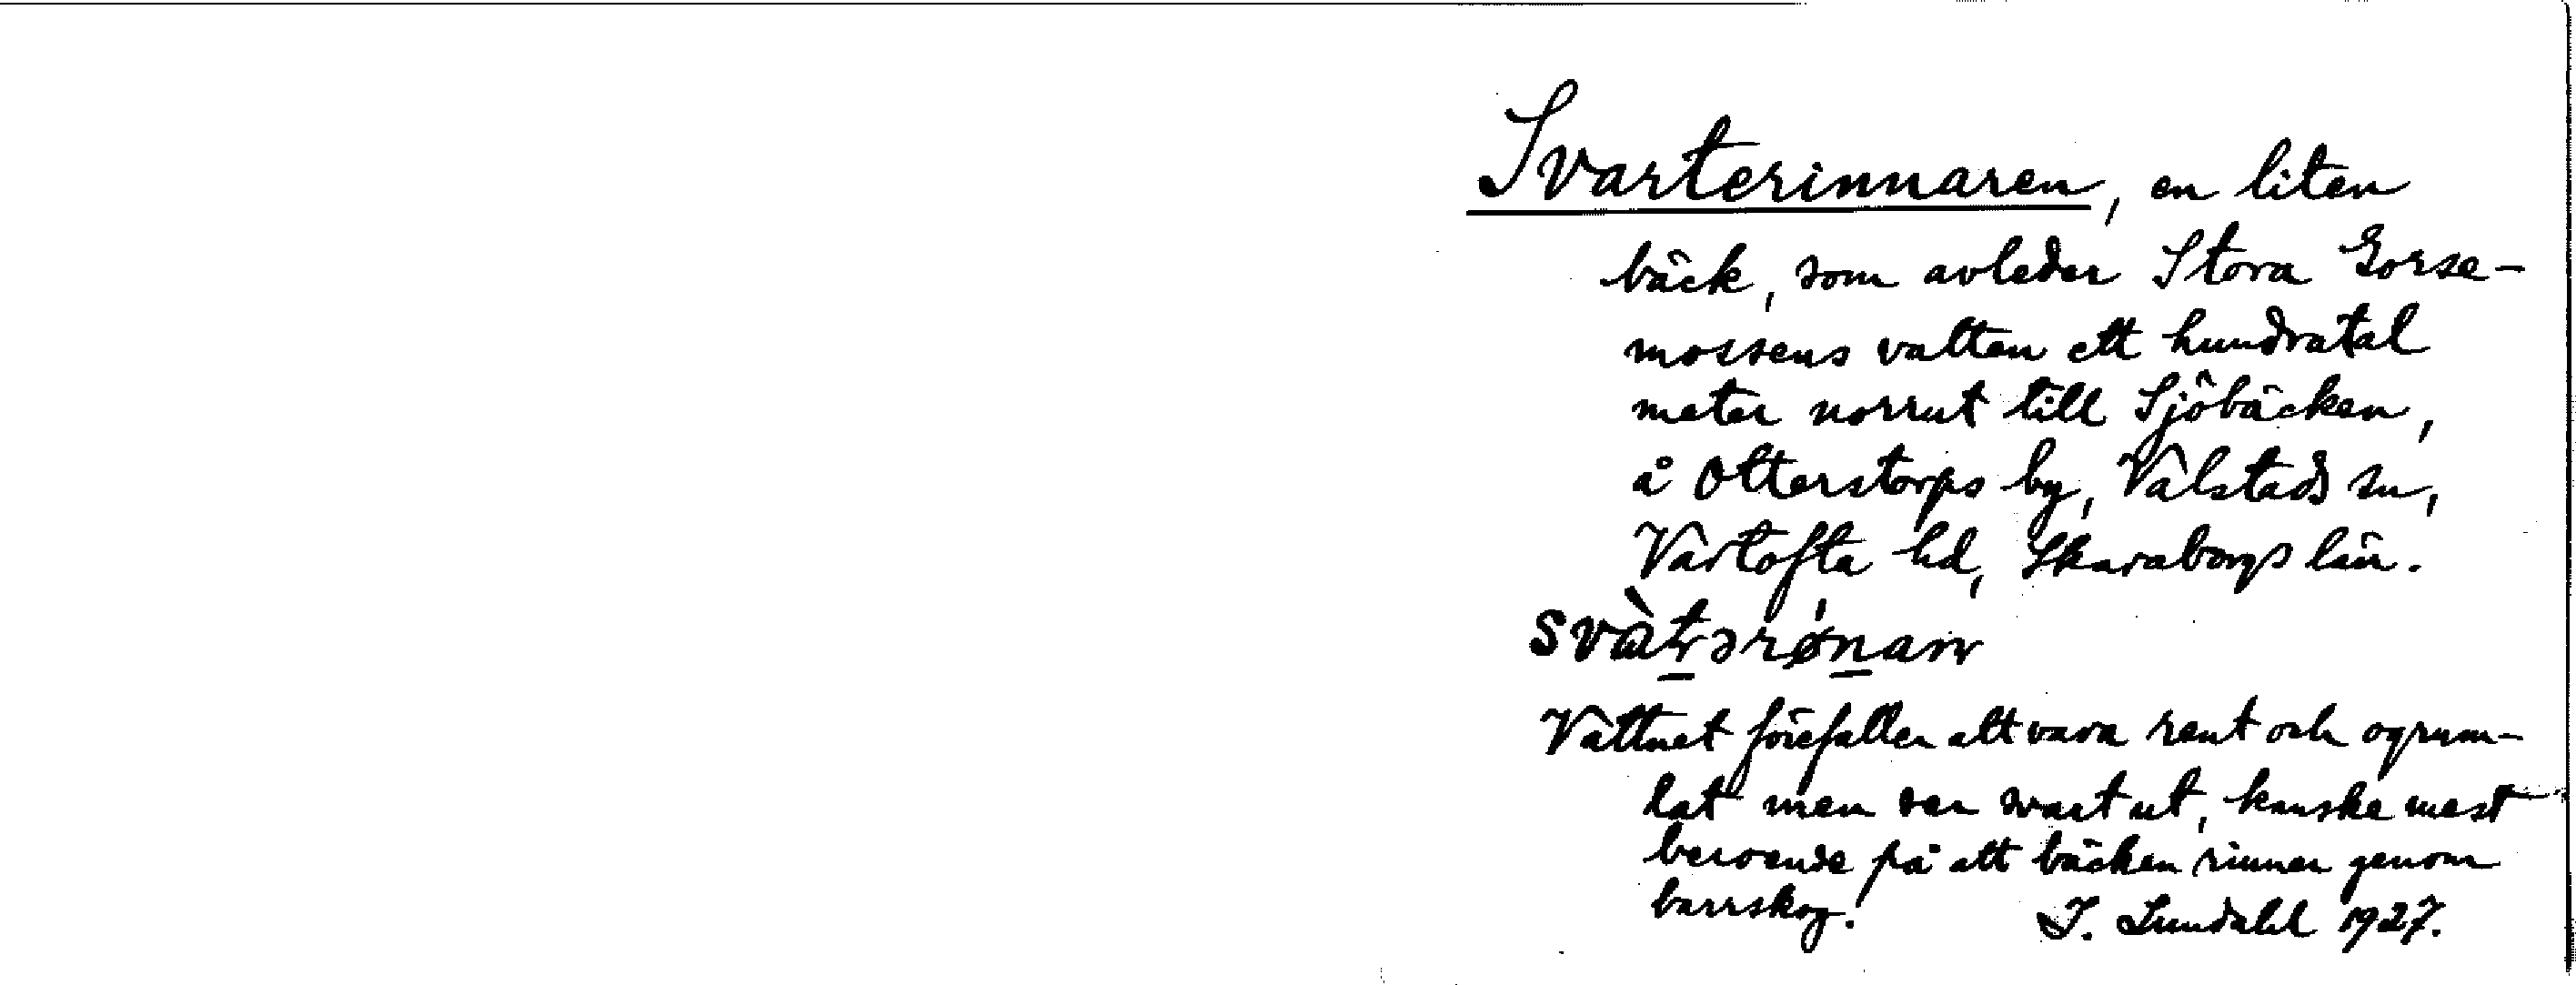 Svarterinnaren, en liten
bäck, som avleder Stora Gorse-
mossens vatten ett hundratal
meter norrut till Sjöbäcken,
å Otterstorps by, Valstads sn,
Vartofta hd, Skaraborgs län.
Vattnet förefaller att vara rent och ogrum-
lat men ser svart ut, kanske mest
beroende på att bäcken rinner genom
barrskog. I. Lundahl 1927.